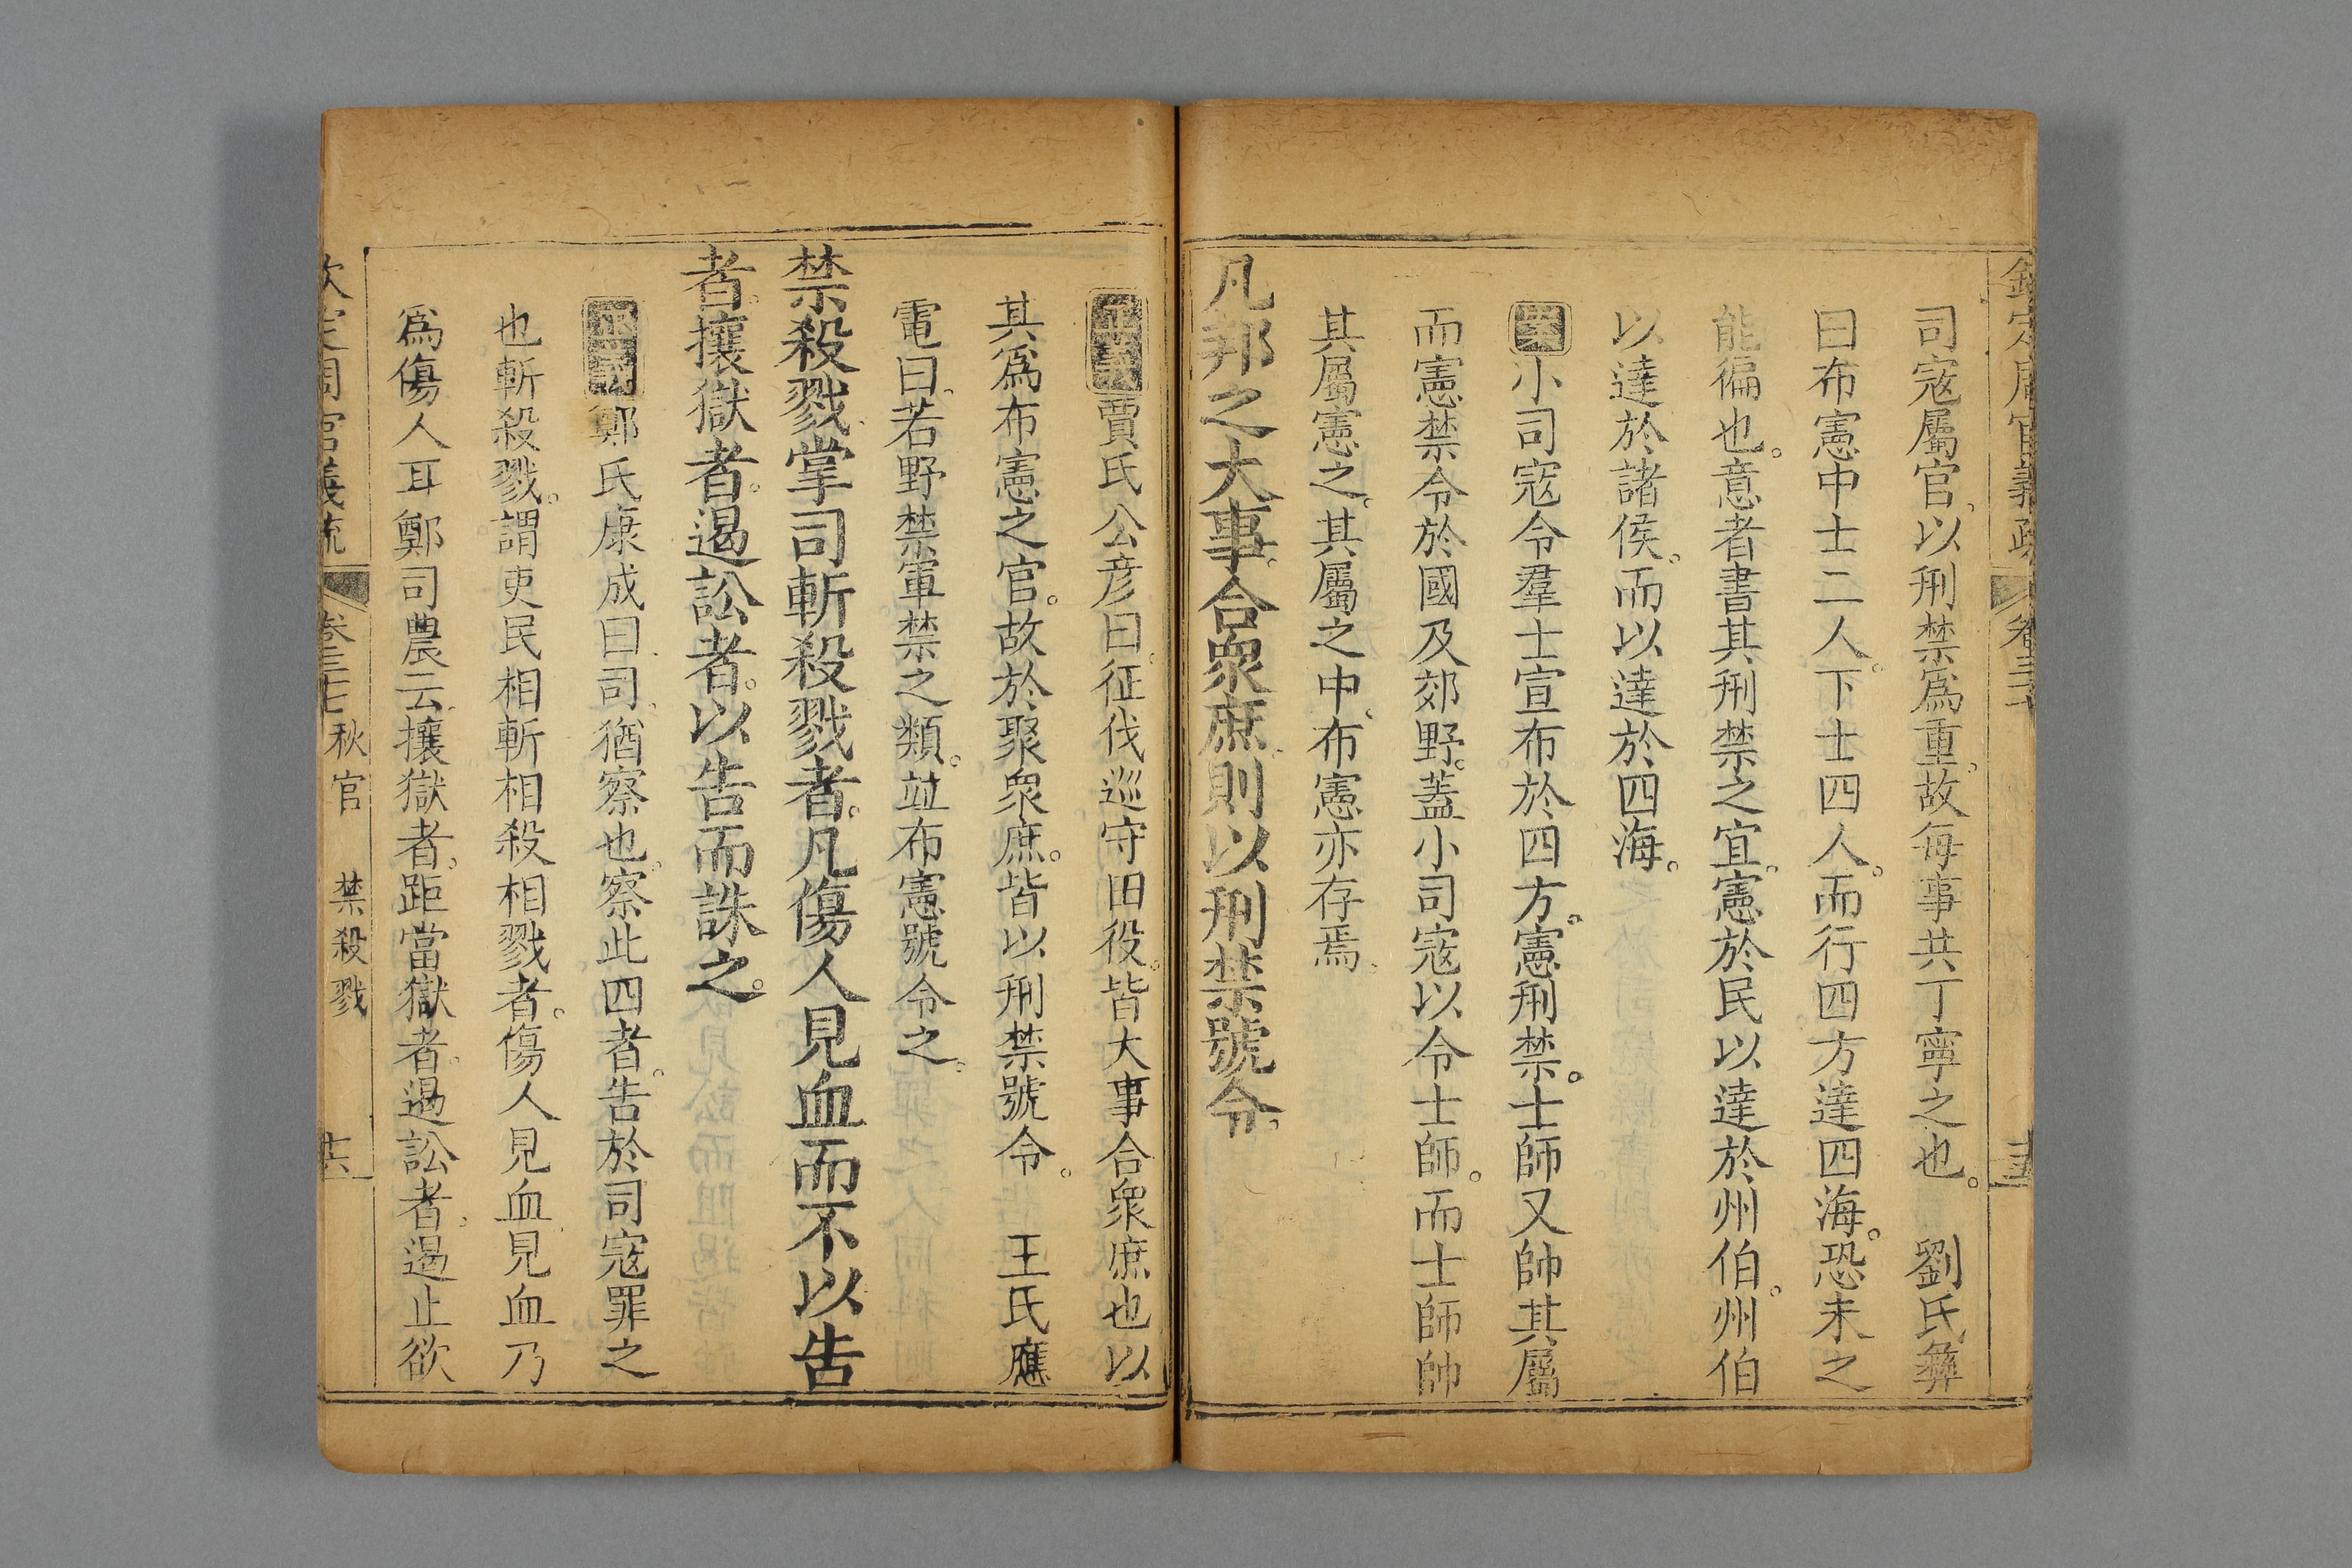 欽定周官義疏 卷三十
司寇屬官、以刑禁爲重。故每事共丁寧之也。　劉氏彝
曰布憲中士二人。下士四人。而行四方達四海。恐未之
能徧也。意者書其刑禁之宜。憲於民以達於州伯。州伯
以達於諸侯。而以達於四海。
案小司寇令羣士宣布於四方。憲刑禁。士師又帥其屬
而憲禁令於國及郊野。蓋小司寇以令士師。而士師帥
其屬憲之。其屬之中、布憲亦存焉
凡邦之大事。合衆庶、則以刑禁號令。
正義賈氏公彦曰。征伐巡守田役。皆大事合衆庶也以
其爲布憲之官。故於聚衆庶。皆以刑禁號令。　王氏應
電曰、若野禁軍禁之類。竝布憲號令之。
禁殺戮掌司斬殺戮者。凡傷人見血而不以告
者。攘獄者。遏訟者。以告而誅之。
正義鄭氏康成曰司、猶察也。察此四者。告於司寇罪之
也斬殺戮。謂吏民相斬相殺相戮者。傷人見血、見血乃
爲傷人耳鄭司農云、攘獄者。距當獄者。遏訟者、遏止欲
欽定周官義疏 卷三十七 秋官　禁殺戮　十六